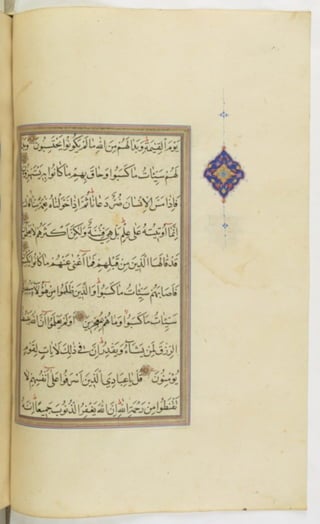 يَوْمَ الْقِيٰمَةِ وَبَدَا لَهُمْ مِنَ اللهِ مَا لَمْ يَكُونُوا يَحْتَسِبُونَ وَبَدَا
لَهُمْ سَيِّئَاتُ مَا كَسَبُوا وَحَاقَ بِهِمْ مَا كَانُوا بِهِ يَسْتَهْزِؤُنَ
فَاِذَا مَسَّ الْاِنْسَانَ ضُرٌّ دَعَانَا ثُمَّ اِذَا خَوَّلْنَاهُ نِعْمَةً مِنَّا قَالَ
اِنَّمَا اُوتِيتُهُ عَلٰى عِلْمٍ بَلْ هِيَ فِتْنَةٌ وَلٰكِنَّ اَكْثَرَهُمْ لَا يَعْلَمُونَ
قَدْ قَالَهَا الَّذِينَ مِنْ قَبْلِهِمْ فَمَا اَغْنٰى عَنْهُمْ مَا كَانُوا يَكْسِبُونَ
فَاَصَابَهُمْ سَيِّئَاتُ مَا كَسَبُوا وَالَّذِينَ ظَلَمُوا مِنْ هٰؤُلَاءِ سَيُصِيبُهُمْ
سَيِّئَاتُ مَا كَسَبُوا وَمَا هُمْ بِمُعْجِزِينَ اَوَلَمْ يَعْلَمُوا اَنَّ اللهَ يَبْسُطُ
الرِّزْقَ لِمَنْ يَشَاءُ وَيَقْدِرُ اِنَّ فِي ذٰلِكَ لَاٰيَاتٍ لِقَوْمٍ
يُؤْمِنُونَ قُلْ يَا عِبَادِيَ الَّذِينَ اَسْرَفُوا عَلٰى اَنْفُسِهِمْ لَا
تَقْنَطُوا مِنْ رَحْمَةِ اللهِ اِنَّ اللهَ يَغْفِرُ الذُّنُوبَ جَمِيعًا اِنَّهُ